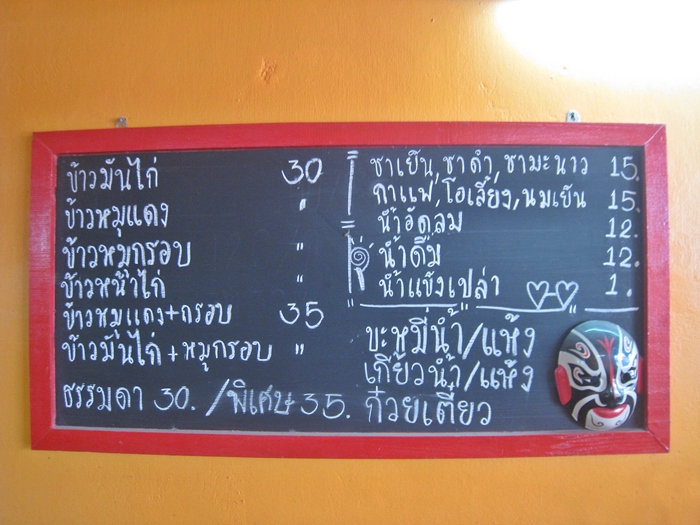 ข้าวมันไก่ 30
ข้าวหมูแดง "
ข้าวหมูกรอบ "
ข้าวหน้าไก่ "
ข้าวหมูแดง+กรอบ 35
ข้าวมันไก่+หมูกรอบ "
ธรรมดา 30. /พิเศษ 35.
ชาเย็น,ชาดำ,ชามะนาว 15.
กาแฟ,โอเลี้ยง,นมเย็น 15.
น้ำอัดลม 12.
น้ำดื่ม 12.
น้ำแข็งเปล่า 1.
บะหมี่น้ำ/แห้ง
เกี๊ยวน้ำ/แห้ง
ก๋วยเตี๋ยว